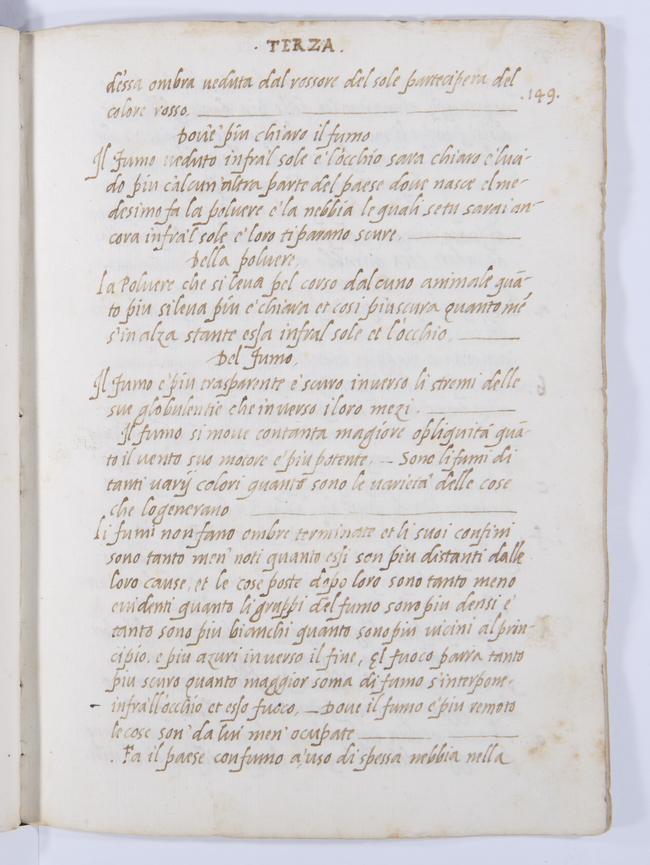 . TERZA .
dessa ombra veduta dal rossore del sole participera del
.149.
colore rosso.
Dov'e piu chiaro il fumo
Il Fumo veduto infra'l sole e l'occhio sara chiaro e luci-
do piu ch'alcun altra parte del paese dove nasce el me-
desimo fa la polvere e la nebbia le quali se tu sarai an-
cora infra'l sole e loro ti parano scure.
Della polvere.
La Polvere che si leva pel corso d'alcuno animale quā-
to piu si leva piu e chiara et cosi piu scura quanto mē
s'inalza stante essa infra'l sole et l'occhio.
Del Fumo.
Il Fumo e piu trasparente e scuro inverso li stremi delle
sue globulentie che inverso i loro mezi.
Il fumo si move con tanta magiore obliquitá quā-
to il vento suo motore e piu potente. — Sono li fumi di
tanti varij colori quante sono le varieta delle cose
che lo generano
Li fumi non fano ombre terminate et li suoi confini
sono tanto men' noti quanto essi son piu distanti dalle
loro cause, et le cose poste dopo loro sono tanto meno
evidenti quanto li gruppi del fumo sono piu densi e
tanto sono piu bianchi quanto sono piu vicini al prin-
cipio. e piu azuri inverso il fine, El fuoco parra tanto
piu scuro quanto maggior soma di fumo s'interpone
infra l'occhio et esso fuoco. — Dove il fumo e piu remoto
le cose son' da lui men' ocupate
. Fa il paese con fumo a uso di spessa nebbia nella